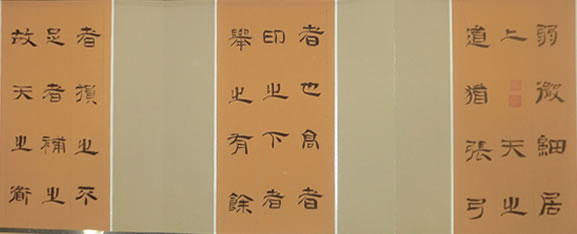 弱微細居
上天之
道猶張弓
者也高者
印之下者
舉之有餘
者損之不
足者補之
故天之衜